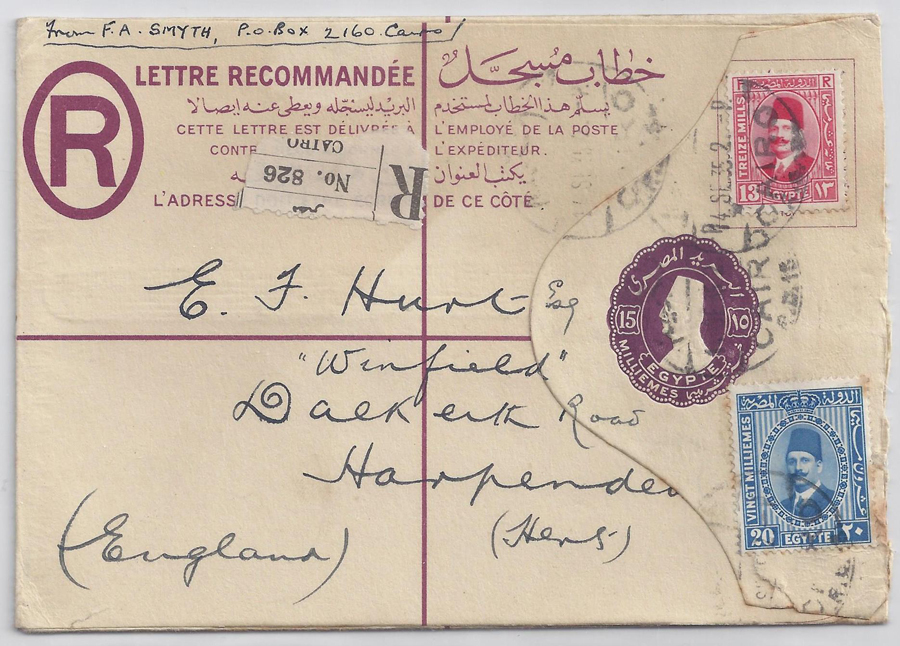 From F.A. SMYTH, P.O. Box 2160. Cairo
R
LETTRE RECOMMANDÉE
خطاب مسجل
البريد ليسجله ويعطى عنه ايصالا
يسلم هذا الخطاب لمستخدم
CETTE LETTRE EST DÉLIVRÉE A
L'EMPLOYÉ DE LA POSTE
CONTE
L'EXPÉDITEUR.
يكتب العنوان
L'ADRESS
DE CE CÔTÉ.
R
No. 826
CAIRO
R R
TREIZE MILLS
13 EGYPTE ١٣
CAIRO
البريد المصرى
15 ١٥
MILLIEMES
EGYPTE
الدولة المصرية
VINGT MILLIEMES
عشرون مليما
20 EGYPTE ٢٠
E. F. Hurt Esq
"Winfield"
Dalkeith Road
Harpenden
(England)
(Herts)